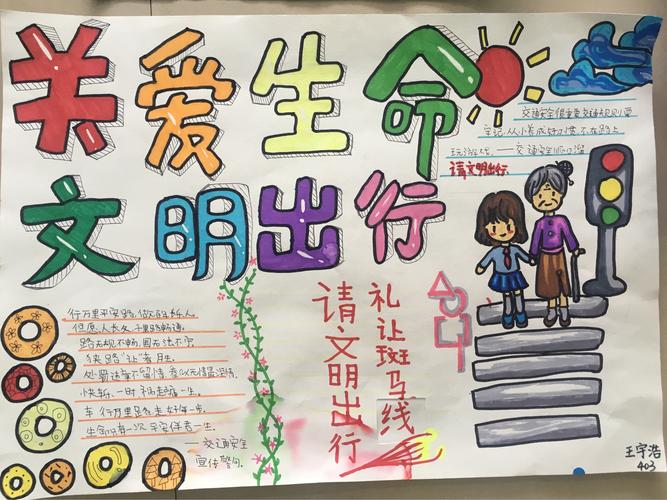 关爱生命
文明出行
交通安全很重要交通规则要
牢记从小养成好习惯不在路上
玩游戏——交通安全顺口溜
请文明出行
行万里平安路,做百年长人
但愿人长久千里路畅通
路无规不畅,国无法不宁
"狭路"让者胜
处罚违章不留情,看似无情最有情
快行一时,祸患一生
车行万里
生命只有一次平安伴君一生
——交通安全
宣传警句
礼让斑马线
请文明出行
王宇浩
403